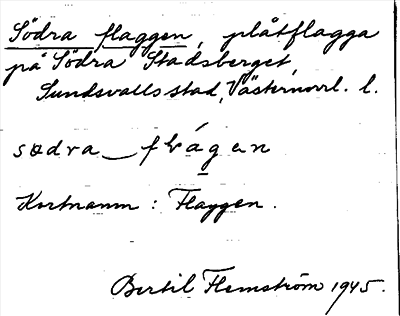 Södra flaggen, plåtflagga
på Södra Stadsberget,
Sundsvalls stad, Västernorrl. l.
Kortnamn: Flaggen.
Bertil Flemström 1945.